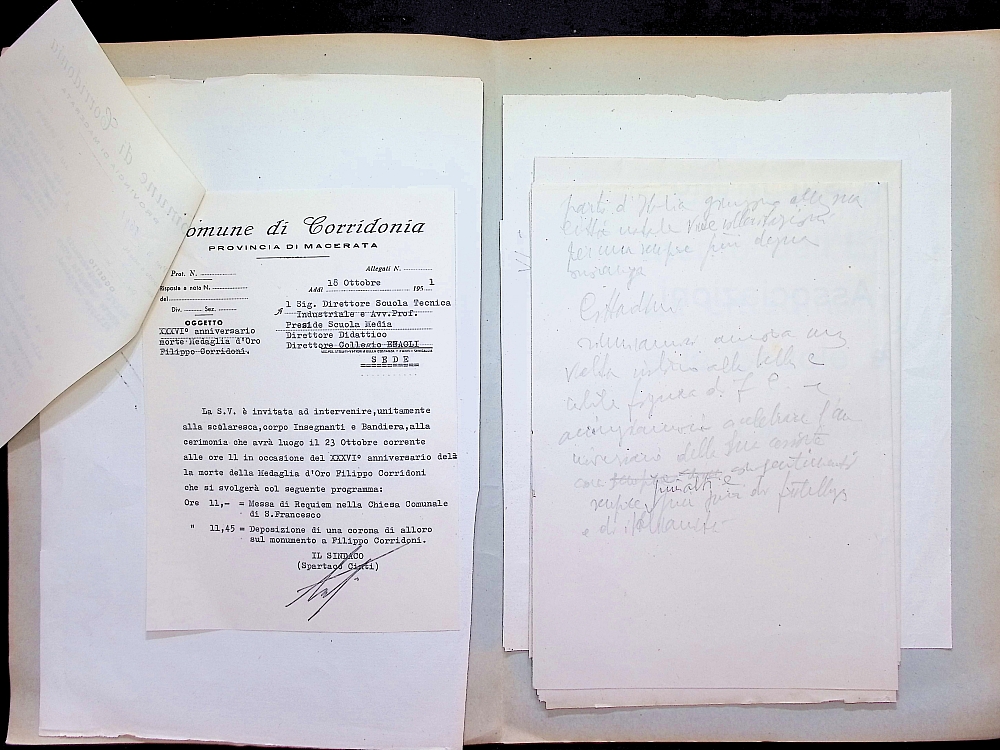 omune di Corridonia
PROVINCIA DI MACERATA
Prot. N.
Allegati N.
Risposta a nota N.
del
Addì 18 Ottobre 195 1
Div. Sez.
OGGETTO
XXXVI° anniversario
morte Medaglia d'Oro
Filippo Corridoni.
A 1 Sig. Direttore Scuola Tecnica
Industriale e Avv.Prof.
Preside Scuola Media
Direttore Didattico
Direttore Collegio ENAOLI
S E D E
La S.V. è invitata ad intervenire,unitamente
alla scolaresca,corpo Insegnanti e Bandiera,alla
cerimonia che avrà luogo il 23 Ottobre corrente
alle ore 11 in occasione del XXXVI° anniversario del
la morte della Medaglia d'Oro Filippo Corridoni
che si svolgerà col seguente programma:
Ore 11,- = Messa di Requiem nella Chiesa Comunale
di S.Francesco
" 11,45 = Deposizione di una corona di alloro
sul monumento a Filippo Corridoni.
IL SINDACO
(Spartaco Ciati)
parti d'Italia giungono alla sua
città natale vive
per una sempre più degna
onoranza
Cittadini
ancora una
volta alla bella e
figura di F. C. e
celebrare l'an
niversario della sua
con sentimenti
sempre più di
e di